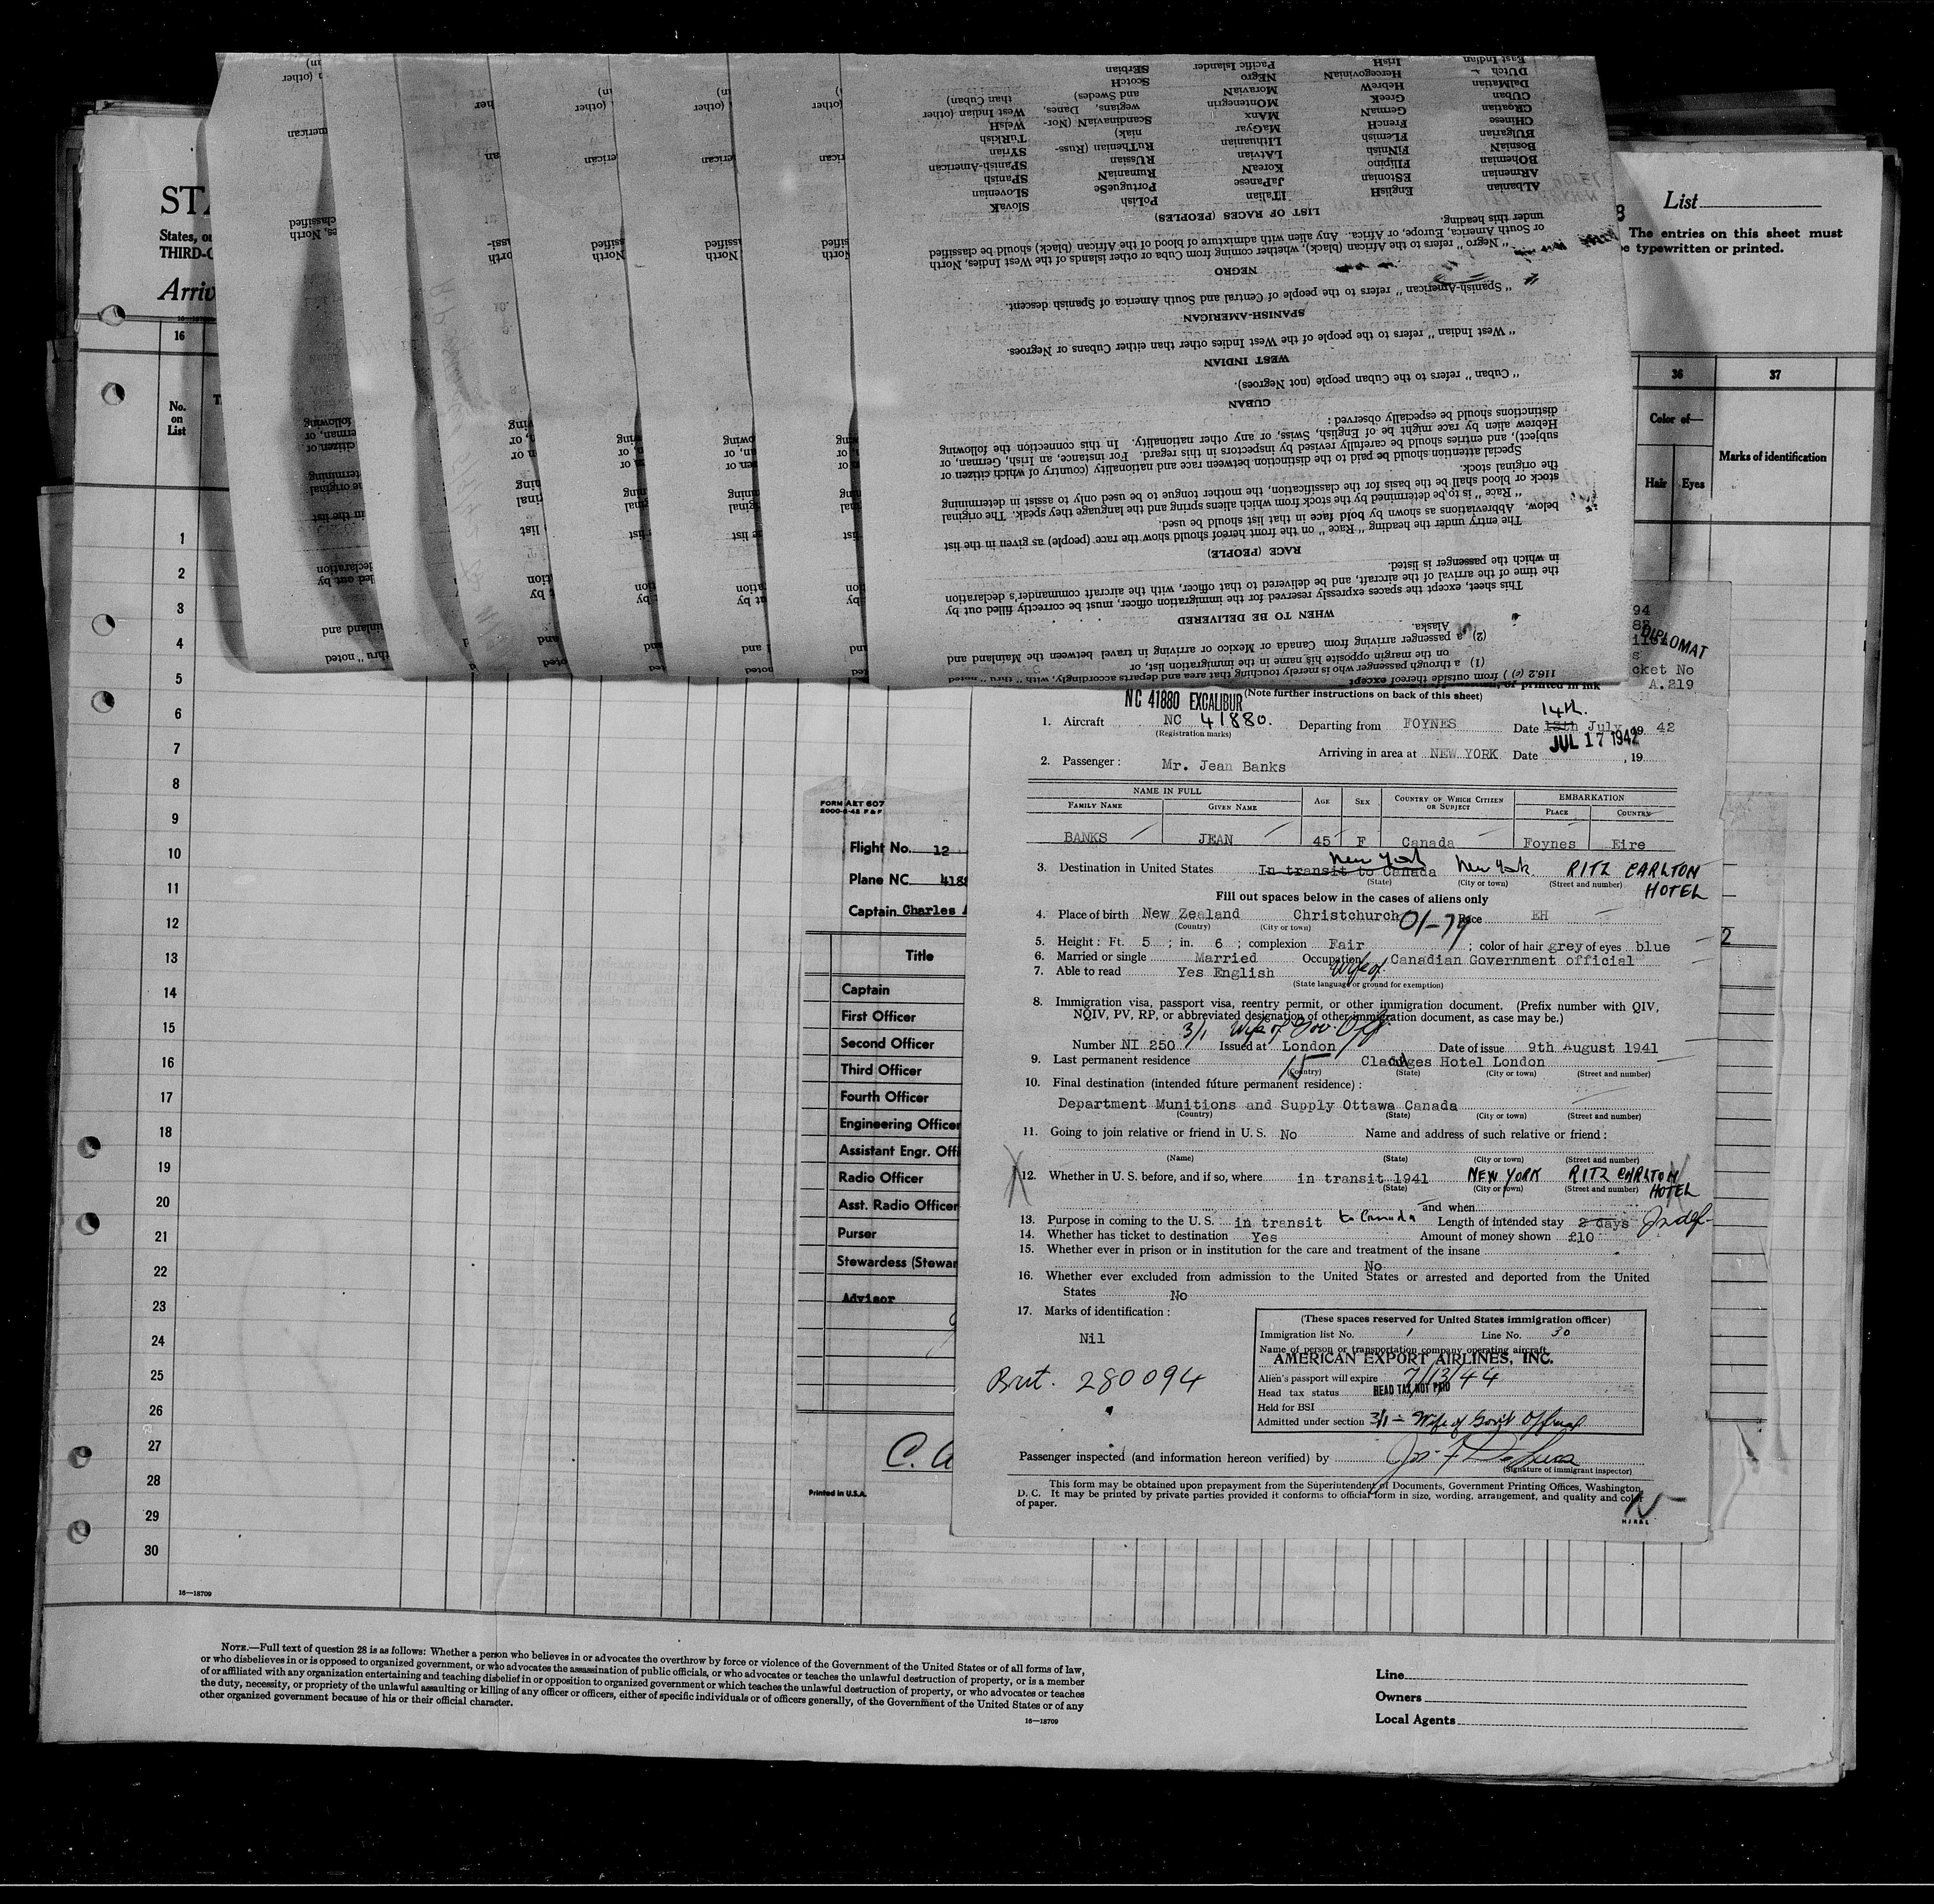 List
The entries on this sheet must
typewritten or printed.
States, or
THIRD-C
Arriv
16
36
37
No.
on
List
Color of—
Hair
Eyes
Marks of identification
1
2
3
4
5
6
7
8
9
10
11
12
13
14
15
16
17
18
19
20
21
22
23
24
25
26
27
28
29
30
16—18709
East Indian
DUtch
DalMatian
CUban
CRoatian
CHinese
BUlgarian
BosniaN
BOhemian
ARMenian
ALbanian
IrisH
HercegoviniaN
HebreW
GreeK
GermaN
FrencH
FLemish
FINnish
FIlipino
EStonian
EnglisH
Pacific Islander
NEgro
MoraviaN
MOntenegrin
MAnx
MaGyar
LIthuanian
LAtvian
KoreaN
JaPanese
ITalian
SErbian
ScotcH
Scandinavian (Nor-
wegians, Danes,
and Swedes)
RuThenian (Russ-
niak)
RUssian
RumaniaN
PortugueSe
PoLish
West Indian (other
than Cuban)
WelsH
TuRkish
SYrian
SPanish-American
SPanish
SLOvenian
SlovaK
LIST OF RACES (PEOPLES)
under this heading.
or South America, Europe, or Africa. Any alien with admixture of blood of the African (black) should be classified
" Negro " refers to the African (black), whether coming from Cuba or other islands of the West Indies, North
NEGRO
" Spanish-American " refers to the people of Central and South America of Spanish descent.
SPANISH-AMERICAN
" West Indian " refers to the people of the West Indies other than either Cubans or Negroes.
WEST INDIAN
" Cuban " refers to the Cuban people (not Negroes).
CUBAN
distinctions should be especially observed :
Hebrew alien by race might be of English, Swiss, or any other nationality. In this connection the following
subject), and entries should be carefully revised by inspectors in this regard. For instance, an Irish, German, or
Special attention should be paid to the distinction between race and nationality (country of which citizen or
the original stock.
stock or blood shall be the basis for the classification, the mother tongue to be used only to assist in determining
" Race " is to be determined by the stock from which aliens spring and the language they speak. The original
below. Abbreviations as shown by bold face in that list should be used.
The entry under the heading " Race " on the front hereof should show the race (people) as given in the list
RACE (PEOPLE)
in which the passenger is listed.
the time of the arrival of the aircraft, and be delivered to that officer, with the aircraft commander's declaration
This sheet, except the spaces expressly reserved for the immigration officer, must be correctly filled out by
WHEN TO BE DELIVERED
Alaska.
(2) a passenger arriving from Canada or Mexico or arriving in travel between the Mainland and
on the margin opposite his name in the immigration list, or
(1) a through passenger who is merely touching that area and departs accordingly, with " thru " noted
116.2 (c) ) from outside thereof except
DIPLOMAT
cket No
A.219
NC 41880 EXCALIBUR
(Note further instructions on back of this sheet)
1. Aircraft NC 41880. Departing from FOYNES Date 14th. 13th July, 19 42
(Registration marks)
Arriving in area at NEW YORK Date JUL 17 1942, 19
2. Passenger : Mr. Jean Banks
NAME IN FULL
FAMILY NAME
GIVEN NAME
AGE
SEX
COUNTRY OF WHICH CITIZEN OR SUBJECT
EMBARKATION
PLACE
COUNTRY
BANKS JEAN 45 F Canada Foynes Eire
New York
3. Destination in United States In transit to Canada New York RITZ CARLTON HOTEL
(State) (City or town) (Street and number)
Fill out spaces below in the cases of aliens only
4. Place of birth New Zealand Christchurch 01-79 Race EH
(Country) (City or town)
5. Height : Ft. 5 ; in. 6 ; complexion Fair ; color of hair grey of eyes blue
6. Married or single Married Occupation Wife of Canadian Government official
7. Able to read Yes English
(State language or ground for exemption)
8. Immigration visa, passport visa, reentry permit, or other immigration document. (Prefix number with QIV,
NQIV, PV, RP, or abbreviated designation of other immigration document, as case may be.)
3/1 Wife of Gov. Off.
Number NI 250 Issued at London Date of issue 9th August 1941
9. Last permanent residence 15 Claridges Hotel London
(Country) (State) (City or town) (Street and number)
10. Final destination (intended future permanent residence) :
Department Munitions and Supply Ottawa Canada
(Country) (State) (City or town) (Street and number)
11. Going to join relative or friend in U. S. No Name and address of such relative or friend :
(Name) (State) (City or town) (Street and number)
12. Whether in U. S. before, and if so, where in transit 1941 NEW YORK RITZ CARLTON HOTEL
(State) (City or town) (Street and number)
and when
13. Purpose in coming to the U. S. in transit to Canada Length of intended stay 2 days Indef-
14. Whether has ticket to destination Yes Amount of money shown £10
15. Whether ever in prison or in institution for the care and treatment of the insane
No
16. Whether ever excluded from admission to the United States or arrested and deported from the United
States No
17. Marks of identification :
Nil
Brit. 280094
(These spaces reserved for United States immigration officer)
Immigration list No. 1 Line No. 30
Name of person or transportation company operating aircraft
AMERICAN EXPORT AIRLINES, INC.
Alien's passport will expire 7/13/44
Head tax status HEAD TAX NOT PAID
Held for BSI
Admitted under section 3/1 - Wife of Gov't Official
Passenger inspected (and information hereon verified) by
(Signature of immigrant inspector)
This form may be obtained upon prepayment from the Superintendent of Documents, Government Printing Offices, Washington,
D. C. It may be printed by private parties provided it conforms to official form in size, wording, arrangement, and quality and color
of paper.
FORM AET 607
Flight No. 12
Plane NC 4188
Captain Charles A
Title
Captain
First Officer
Second Officer
Third Officer
Fourth Officer
Engineering Officer
Assistant Engr. Offi
Radio Officer
Asst. Radio Officer
Purser
Stewardess (Stewar
Advisor
C. A
Printed in U.S.A.
NOTE.—Full text of question 28 is as follows: Whether a person who believes in or advocates the overthrow by force or violence of the Government of the United States or of all forms of law,
or who disbelieves in or is opposed to organized government, or who advocates the assassination of public officials, or who advocates or teaches the unlawful destruction of property, or is a member
of or affiliated with any organization entertaining and teaching disbelief in or opposition to organized government or which teaches the unlawful destruction of property, or who advocates or teaches
the duty, necessity, or propriety of the unlawful assaulting or killing of any officer or officers, either of specific individuals or of officers generally, of the Government of the United States or of any
other organized government because of his or their official character.
16—18709
Line
Owners
Local Agents